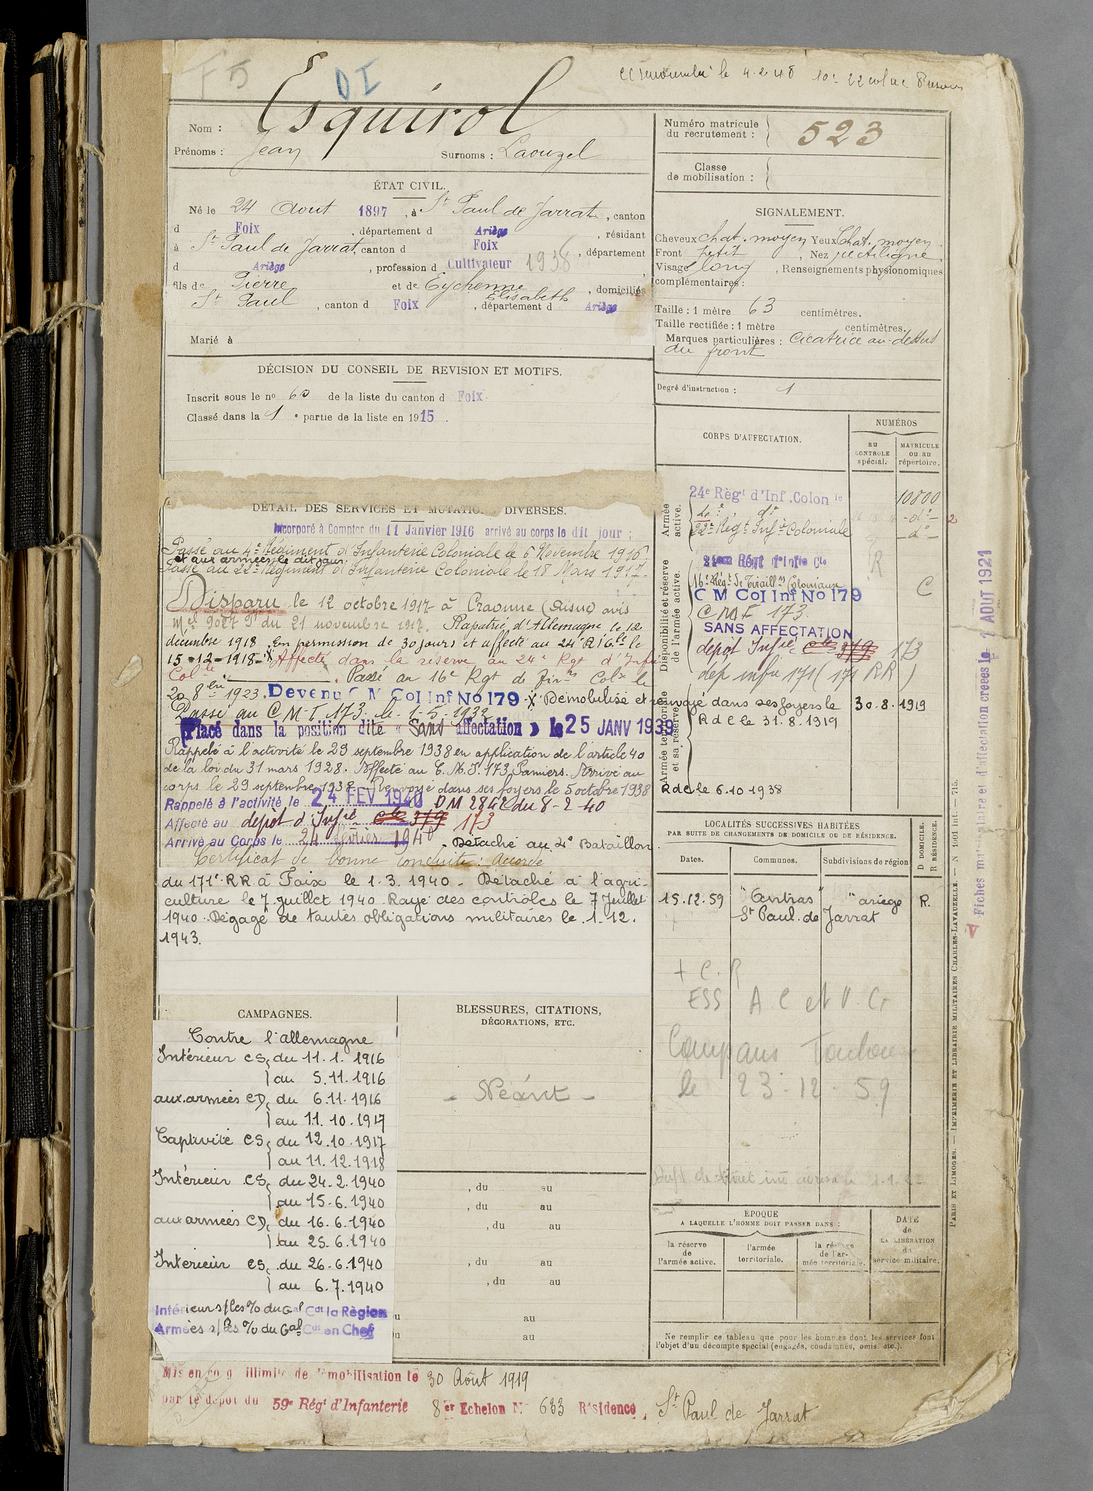 F 5
D I
le 4.2.48
Esquirol
Nom :
Prénoms : Jean
Surnoms : Laouzel
Numéro matricule
du recrutement : 523
Classe
de mobilisation :
ÉTAT CIVIL.
Né le 24 Aout 1897, à St Paul de Jarrat, canton
d Foix, département d Ariège, résidant
à St Paul de Jarrat, canton d Foix, département
d Ariège, profession d Cultivateur 1938
fils de Pierre et de Eychenne Elisabeth, domiciliés
St Paul, canton d Foix, département d Ariège
Marié à
SIGNALEMENT.
Cheveux chat. moyen Yeux Chat. moyen
Front petit, Nez rectiligne
Visage long, Renseignements physionomiques
complémentaires :
Taille : 1 mètre 63 centimètres.
Taille rectifiée : 1 mètre centimètres.
Marques particulières : Cicatrice au-dessus
du front
Degré d'instruction : 1
DÉCISION DU CONSEIL DE REVISION ET MOTIFS.
Inscrit sous le no 60 de la liste du canton d Foix.
Classé dans la 1e partie de la liste en 1915.
CORPS D'AFFECTATION.
NUMÉROS
AU
CONTROLE
spécial.
MATRICULE
OU AU
répertoire.
Armée
active.
24e Régt d'Inf. Colonle 10800
do do -do-
22e Régt Infie Coloniale -do-
Disponibilité et réserve
de l'armée active.
R
16e Régt de Tiraillrs Coloniaux C
C M Col Inf No 179
C M I 173.
SANS AFFECTATION
depot Infie cle 379 173
dep infie 171 (171 RR)
Armée territoriale
et sa réserve.
30.8.1919
R d C le 31.8.1919
R d C le 6.10.1938
DÉTAIL DES SERVICES ET MUTATIONS DIVERSES.
Incorporé à Compter du 11 Janvier 1916 arrivé au corps le dit jour :
Passé au 4e Régiment d'Infanterie Coloniale le 6 Novembre 1916
et aux armées le dit jour
Passé au 22e Régiment d'Infanterie Coloniale le 18 Mars 1917.
Disparu le 12 octobre 1917 à Craonne (Aisne) avis
du 21 novembre 1917. Rapatrié d'Allemagne le 12
décembre 1918. En permission de 30 jours et affecté au 24e R.I.C. le
15-12-1918 - X Affecté dans la réserve au 24e Rgt d'Infie
Colle. Passé au 16e Rgt de Tirrs Colx le
20 8bre 1923. Devenu C M Col Inf No 179 - X Démobilisé et renvoyé dans ses foyers le
Passé au C.M.I. 173. le 1.5.1932
Placé dans la position dite « Sans affectation » le 25 JANV 1939
Rappelé à l'activité le 29 septembre 1938 en application de l'article 40
de la loi du 31 mars 1928. Affecté au C.M.I. 173 Pamiers. Arrivé au
corps le 29 septembre 1938. Renvoyé dans ses foyers le 5 octobre 1938
Rappelé à l'activité le 24 FEV 1940 DM 2842 du 8-2-40
Affecté au depot d'Infie cle 379 173
Arrivé au Corps le 24 février 1940. Détaché au 4e Bataillon
Certificat de bonne conduite : accordé
du 171e RR à Foix le 1.3.1940 - Détaché à l'agri-
culture le 7 juillet 1940. Rayé des contrôles le 7 Juillet
1940. Dégagé de toutes obligations militaires le 1.12.
1943.
LOCALITÉS SUCCESSIVES HABITÉES
PAR SUITE DE CHANGEMENTS DE DOMICILE OU DE RÉSIDENCE.
Dates.
Communes.
Subdivisions de région
D DOMICILE.
R RÉSIDENCE.
15.12.59 "Antras" "ariège R.
St Paul de Jarrat
+ C. R
ESS A C et V Cr
Compans Toulouse
le 23-12-59
CAMPAGNES.
Contre l'allemagne
Intérieur CS, du 11.1.1916
au 5.11.1916
aux armées CD, du 6.11.1916
au 11.10.1917
Captivité CS, du 12.10.1917
au 11.12.1918
Intérieur CS, du 24.2.1940
au 15.6.1940
aux armées CD, du 16.6.1940
au 25.6.1940
Intérieur CS, du 26.6.1940
au 6.7.1940
Intérieur s/les % du Gal Cdt la Région
Armées s/les % du Gal Cdt en Chef
BLESSURES, CITATIONS,
DÉCORATIONS, ETC.
- Néant -
, du au
, du au
, du au
, du au
, du au
au
au
EPOQUE
A LAQUELLE L'HOMME DOIT PASSER DANS :
la réserve
de
l'armée active.
l'armée
territoriale.
la réserve
de l'ar-
mée territoriale.
DATE
de
LA LIBÉRATION
du
service militaire.
Ne remplir ce tableau que pour les hommes dont les services font
l'objet d'un décompte spécial (engagés, condamnés, omis, etc.).
Mis en congé illimité de démobilisation le 30 Août 1919
par le dépôt du 59e Régt d'Infanterie 8er Echelon No 633 Résidence, St Paul de Jarrat
PARIS ET LIMOGES. — IMPRIMERIE ET LIBRAIRIE MILITAIRES CHARLES-LAVAUZELLE. — N 1001 int. — 715.
Fiches matriculaire et d'affectation créées le 1 AOUT 1921